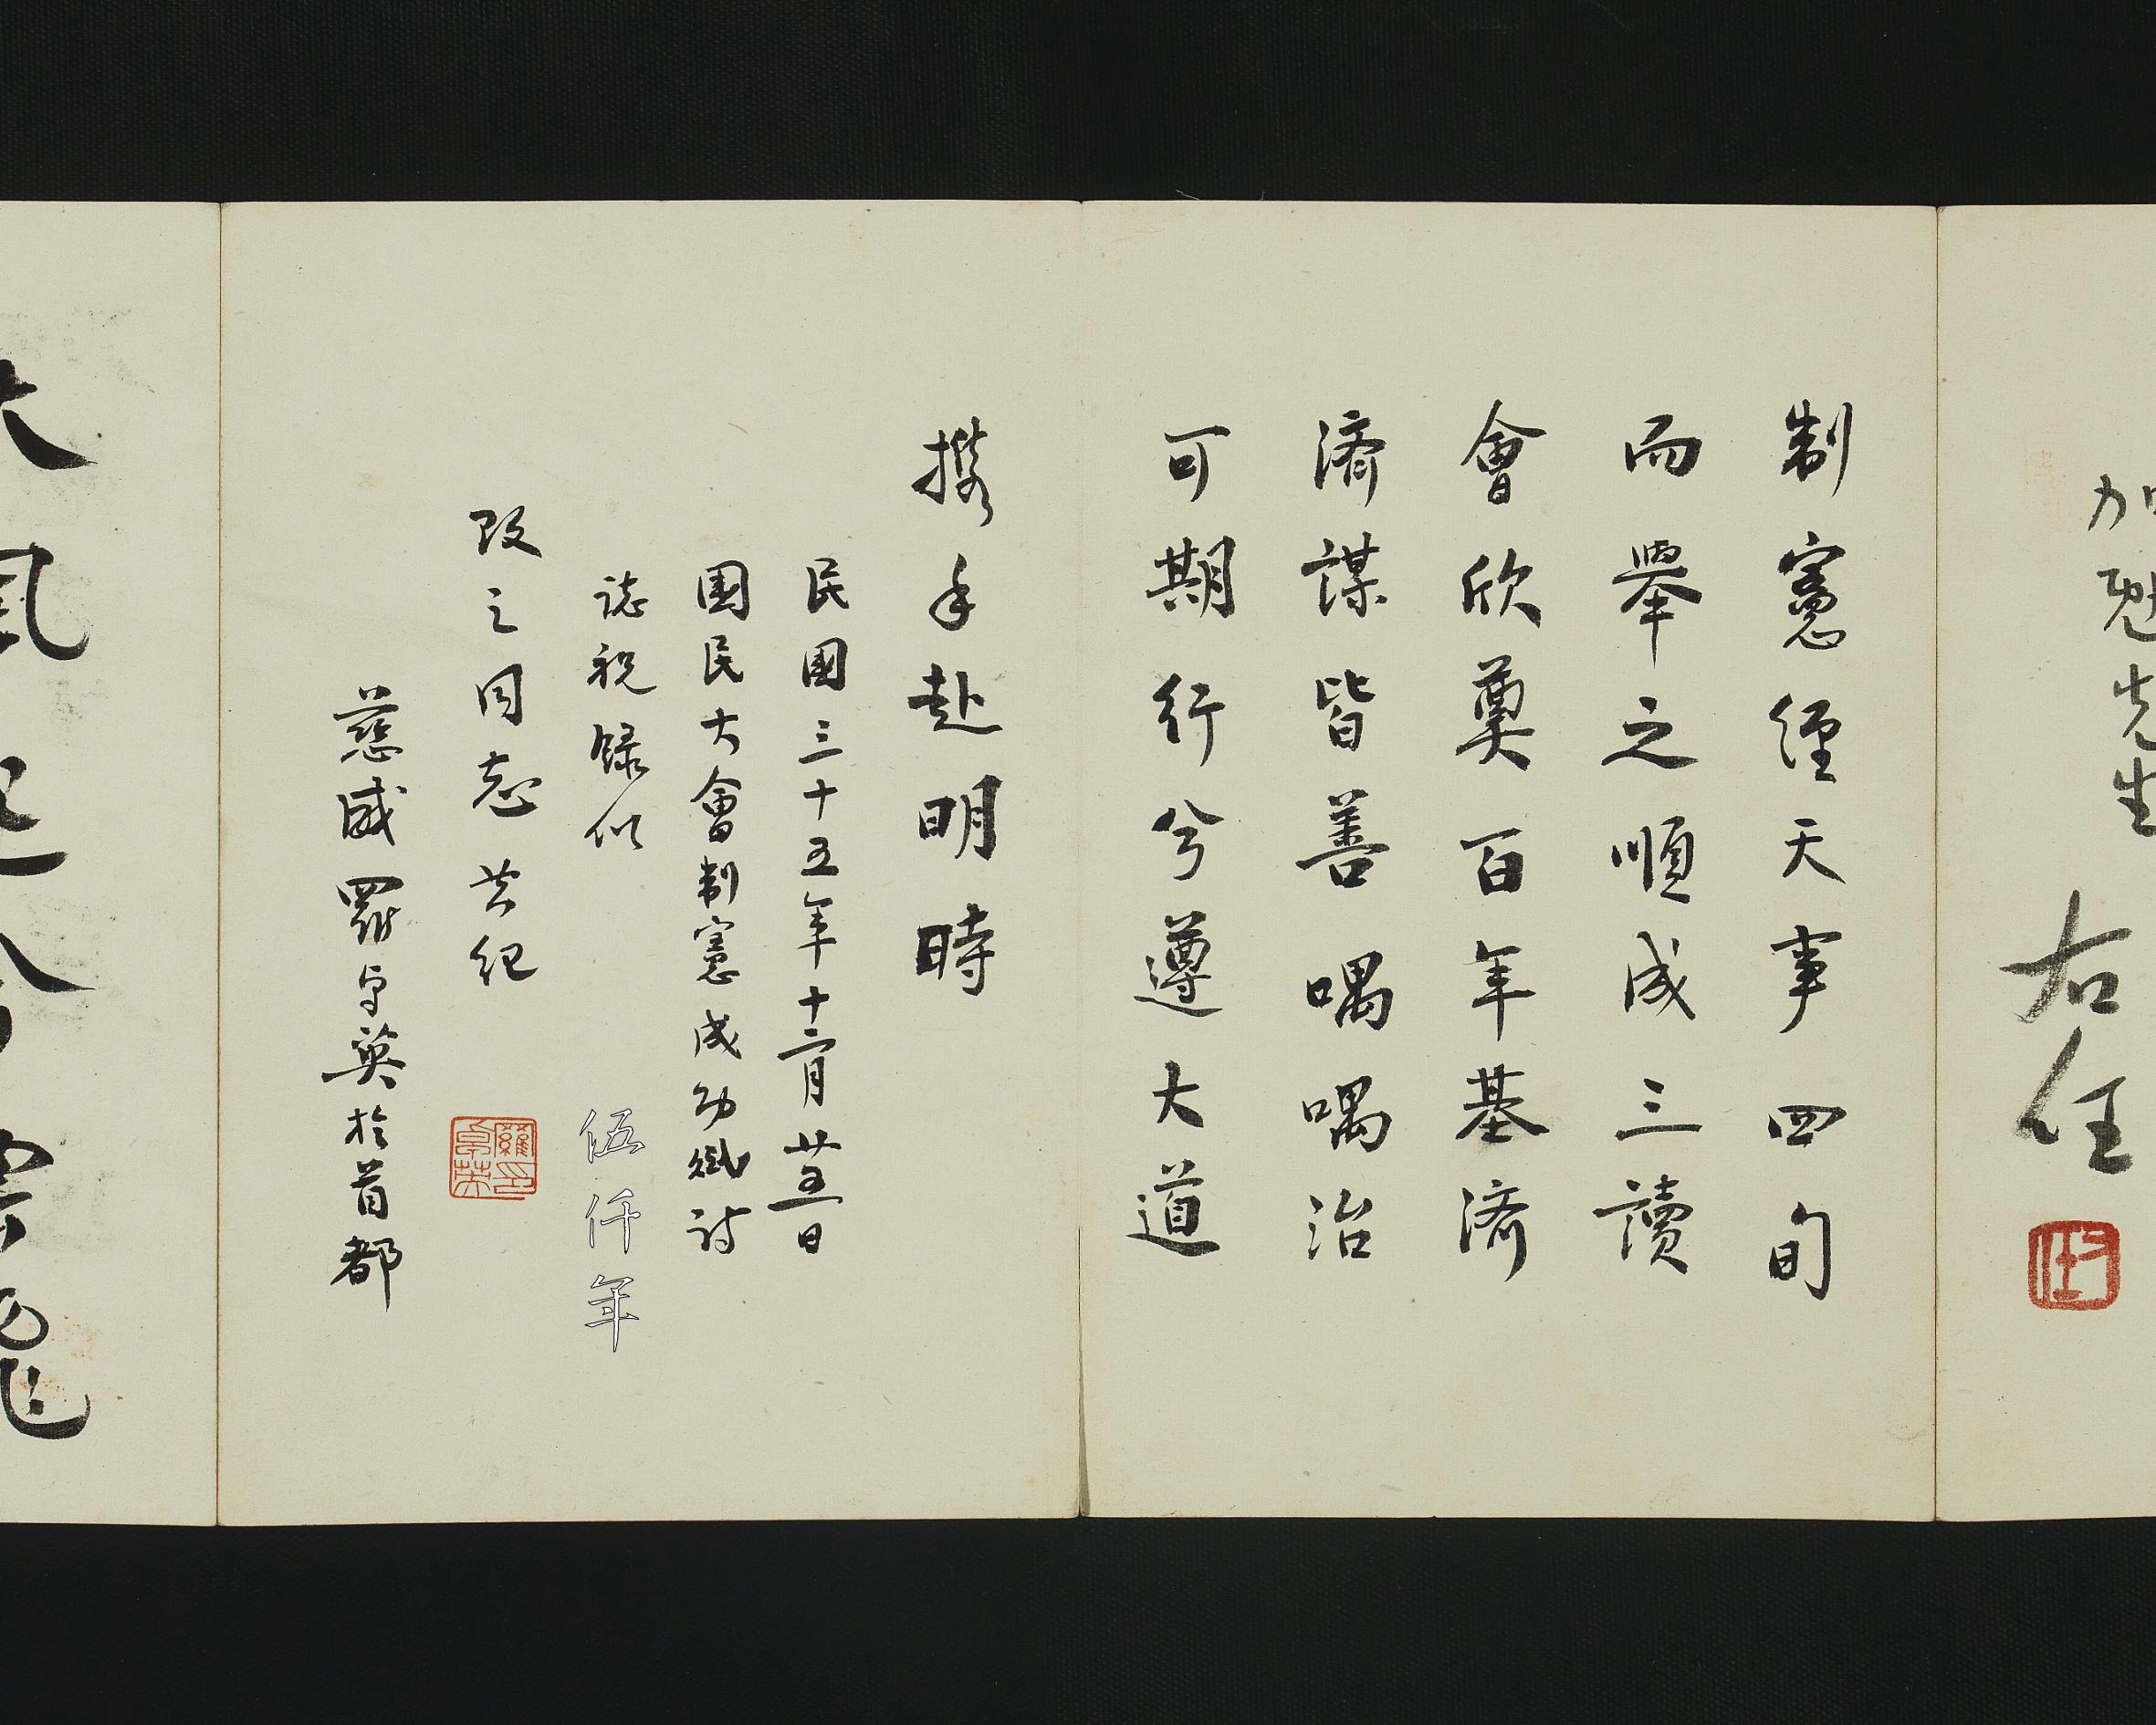 加魁先生
右任
制憲經天事四旬
而舉之順成三讀
會欣奠百年基濟
濟謀皆善喁喁治
可期行兮遵大道
攜手赴明時
民國三十五年十二月廿五日
國民大會制憲成功獻詩
誌祝錄似
政之同志共紀
慈威羅卓英於首都
伍仟年
大風起兮雲飛